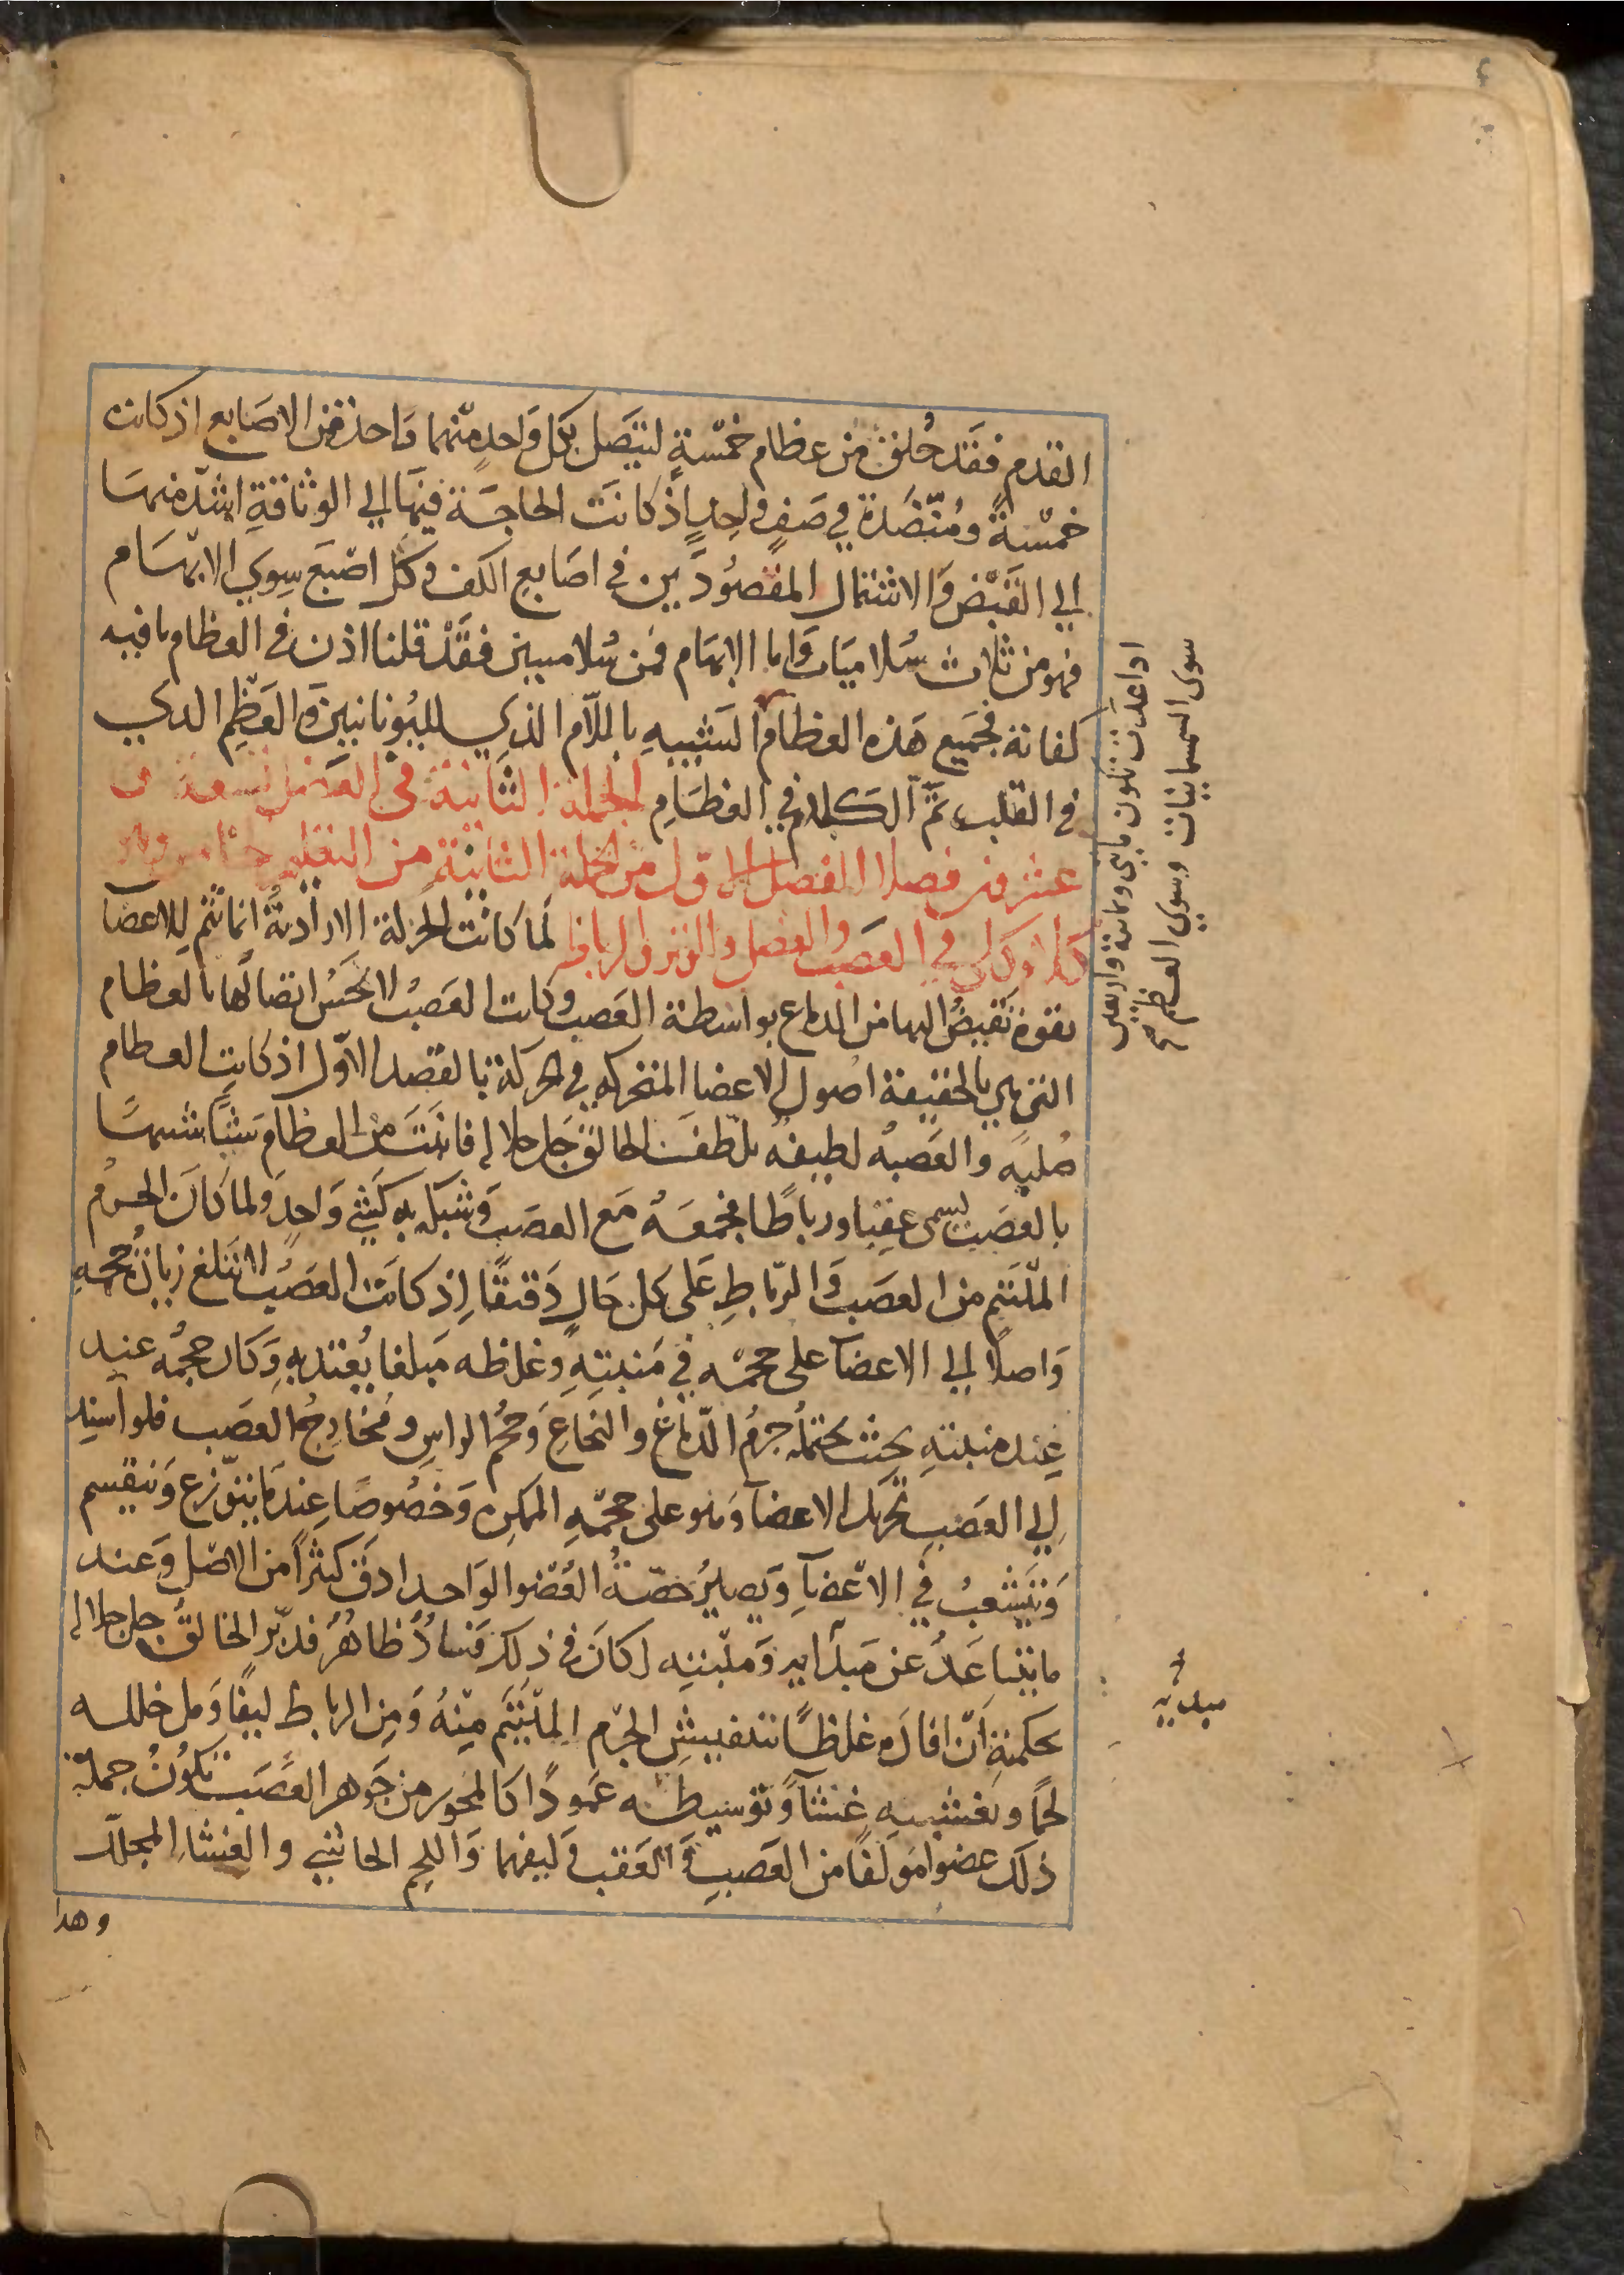 القدم فقد خُلق من عظام خمسةٍ ليتصل بكل واحدٍ منهما واحد من الاصابع اذ كانت
خمسةً ومُنضّدة في صفٍ واحدٍ اذ كانَت الحاجة فيها الي الوثاقةِ اشدّ منها
الي القَبْض وَالاشتمال المقصُودَين في اصَابع الكف وكل اصْبَع سِوي الابهام
فهو من ثلاث سُلاميات وَاما الابهَام فمن سُلاميين فقَدْ قلنا اذن في العظام ما فيه
كفاية فجَميع هَذه العظام الشبيهِ باللّام الذي لليُونانيين وَالعَظِم الدي
في القلب تمَّ الكلام في العظَامِ الجملة الثَانية في العضل تسعة و
عشرون فصلا الفصل الاول من الجملة الثانية من التعليم
كلام كلي في العَصَب والعضل والوتر والرباط لما كانَت الحركة الارادية انما تتم للاعضآ
بقوة تَفيضُ اليها من الدماغ بواسطة العَصب وكانت العَصبُ لا يحسُن اتصَالُها بالعظام
التي هي بالحقيقة اصول الاعضا المتحركه في الحركة بالقصد الاوّل اذ كانت العظام
صُلبةٍ والعَصبُه لطيفهٌ تلطّف الخالق جَل جلاله فانبَتَ من العظام شيًا شبيهًا
بالعصَب يسمى عقبا ورباطًا فجمعَهُ مَع العصَب وَشبكه به كَشي وَاحدٍ ولما كانَ الجرمُ
الملْتئم من العصَب وَالرّباطِ عَلى كل حَالٍ دَقيقًا اِذ كانت العصَبُ لا تَبلغ زيادةُ حجمهِ
وَاصلاً الي الاعضآ على حجمه في مَنبتهِ وغلظه مَبلغا يُعتد بهِ وَكان حجمُه عند
عِند منبتهِ بحيثُ يحتملُه جرمُ الدّماغِ والنخاعِ وَحجمُ الراسِ ومخَارجُ العصَب فلو اُسنِد
اِلي العَصَبِ تحريك الاعضآ وَهو على حجمهِ الممكن وَخصُوصًا عِندمَا يتوزّع وَينقسم
وَيتَشعبُ في الاعضآءِ وَيصيرُ حصّةُ العُضو الوَاحد ادَق كثيرًا من الاصْلِ وَعند
ما يتباعَدُ عن مَبدَايه وَمنبته لكانَ في ذلك فسادٌ ظاهرٌ فدبّر الخالقُ جل جلاله
بحكمته اَن افادَه غلظًا بتنفيشِ الجرْم الملْتئَم مِنهُ وَمِن الرباط ليفًا وَملِ خلله
لحمًا وتغشيهِ غِشآءً وَتوسيطه عَمودًا كالمحور من جَوهر العَصَبَ تكُونُ جملة
ذلك عضوا مؤلفًا من العَصبِ وَالعَقب وَليفهما وَاللحم الحاشي والغشاءِ المجلّل
وهدا
اذا عدت تكون مايتي وثمانية واربعين
سوى السمسمانيات وسوي العظم
مبدئه